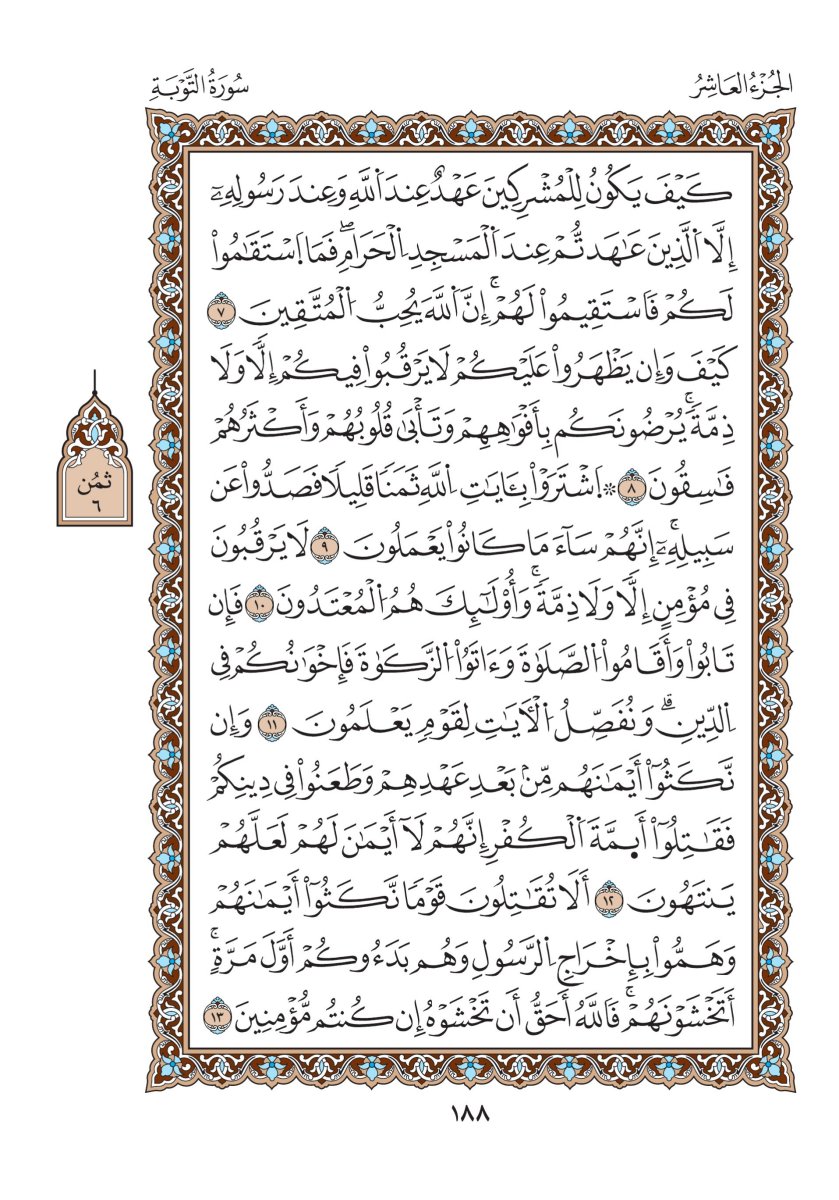 الجُزْءُ العَاشِرُ
سُورَةُ التَّوْبَةِ
كَيْفَ يَكُونُ لِلْمُشْرِكِينَ عَهْدٌ عِندَ اَللَّهِ وَعِندَ رَسُولِهِۦٓ
إِلَّا اَلَّذِينَ عَٰهَدتُّمْ عِندَ اَلْمَسْجِدِ اِلْحَرَامِۖ فَمَا اَسْتَقَٰمُواْ
لَكُمْ فَاسْتَقِيمُواْ لَهُمْۚ إِنَّ اَللَّهَ يُحِبُّ اُلْمُتَّقِينَ ٧
كَيْفَ وَإِن يَظْهَرُواْ عَلَيْكُمْ لَا يَرْقُبُواْ فِيكُمْ إِلّٗا وَلَا
ذِمَّةٗۚ يُرْضُونَكُم بِأَفْوَٰهِهِمْ وَتَأْبَىٰ قُلُوبُهُمْ وَأَكْثَرُهُمْ
فَٰسِقُونَ ٨ ۞ اِشْتَرَوْاْ بِـَٔايَٰتِ اِللَّهِ ثَمَنٗا قَلِيلٗا فَصَدُّواْ عَن
سَبِيلِهِۦٓۚ إِنَّهُمْ سَآءَ مَا كَانُواْ يَعْمَلُونَ ٩ لَا يَرْقُبُونَ
فِي مُؤْمِنٍ إِلّٗا وَلَا ذِمَّةٗۚ وَأُوْلَٰٓئِكَ هُمُ اُلْمُعْتَدُونَ ١٠ فَإِن
تَابُواْ وَأَقَامُواْ اُلصَّلَوٰةَ وَءَاتَوُاْ اُلزَّكَوٰةَ فَإِخْوَٰنُكُمْ فِي
اِلدِّينِۗ وَنُفَصِّلُ اُلْأٓيَٰتِ لِقَوْمٖ يَعْلَمُونَ ١١ وَإِن
نَّكَثُوٓاْ أَيْمَٰنَهُم مِّنۢ بَعْدِ عَهْدِهِمْ وَطَعَنُواْ فِي دِينِكُمْ
فَقَٰتِلُوٓاْ أَيِمَّةَ اَلْكُفْرِ إِنَّهُمْ لَآ أَيْمَٰنَ لَهُمْ لَعَلَّهُمْ
يَنتَهُونَ ١٢ أَلَا تُقَٰتِلُونَ قَوْمٗا نَّكَثُوٓاْ أَيْمَٰنَهُمْ
وَهَمُّواْ بِإِخْرَاجِ اِلرَّسُولِ وَهُم بَدَءُوكُمْ أَوَّلَ مَرَّةٍۚ
أَتَخْشَوْنَهُمْۚ فَاللَّهُ أَحَقُّ أَن تَخْشَوْهُ إِن كُنتُم مُّؤْمِنِينَ ١٣
ثُمُن
٦
١٨٨